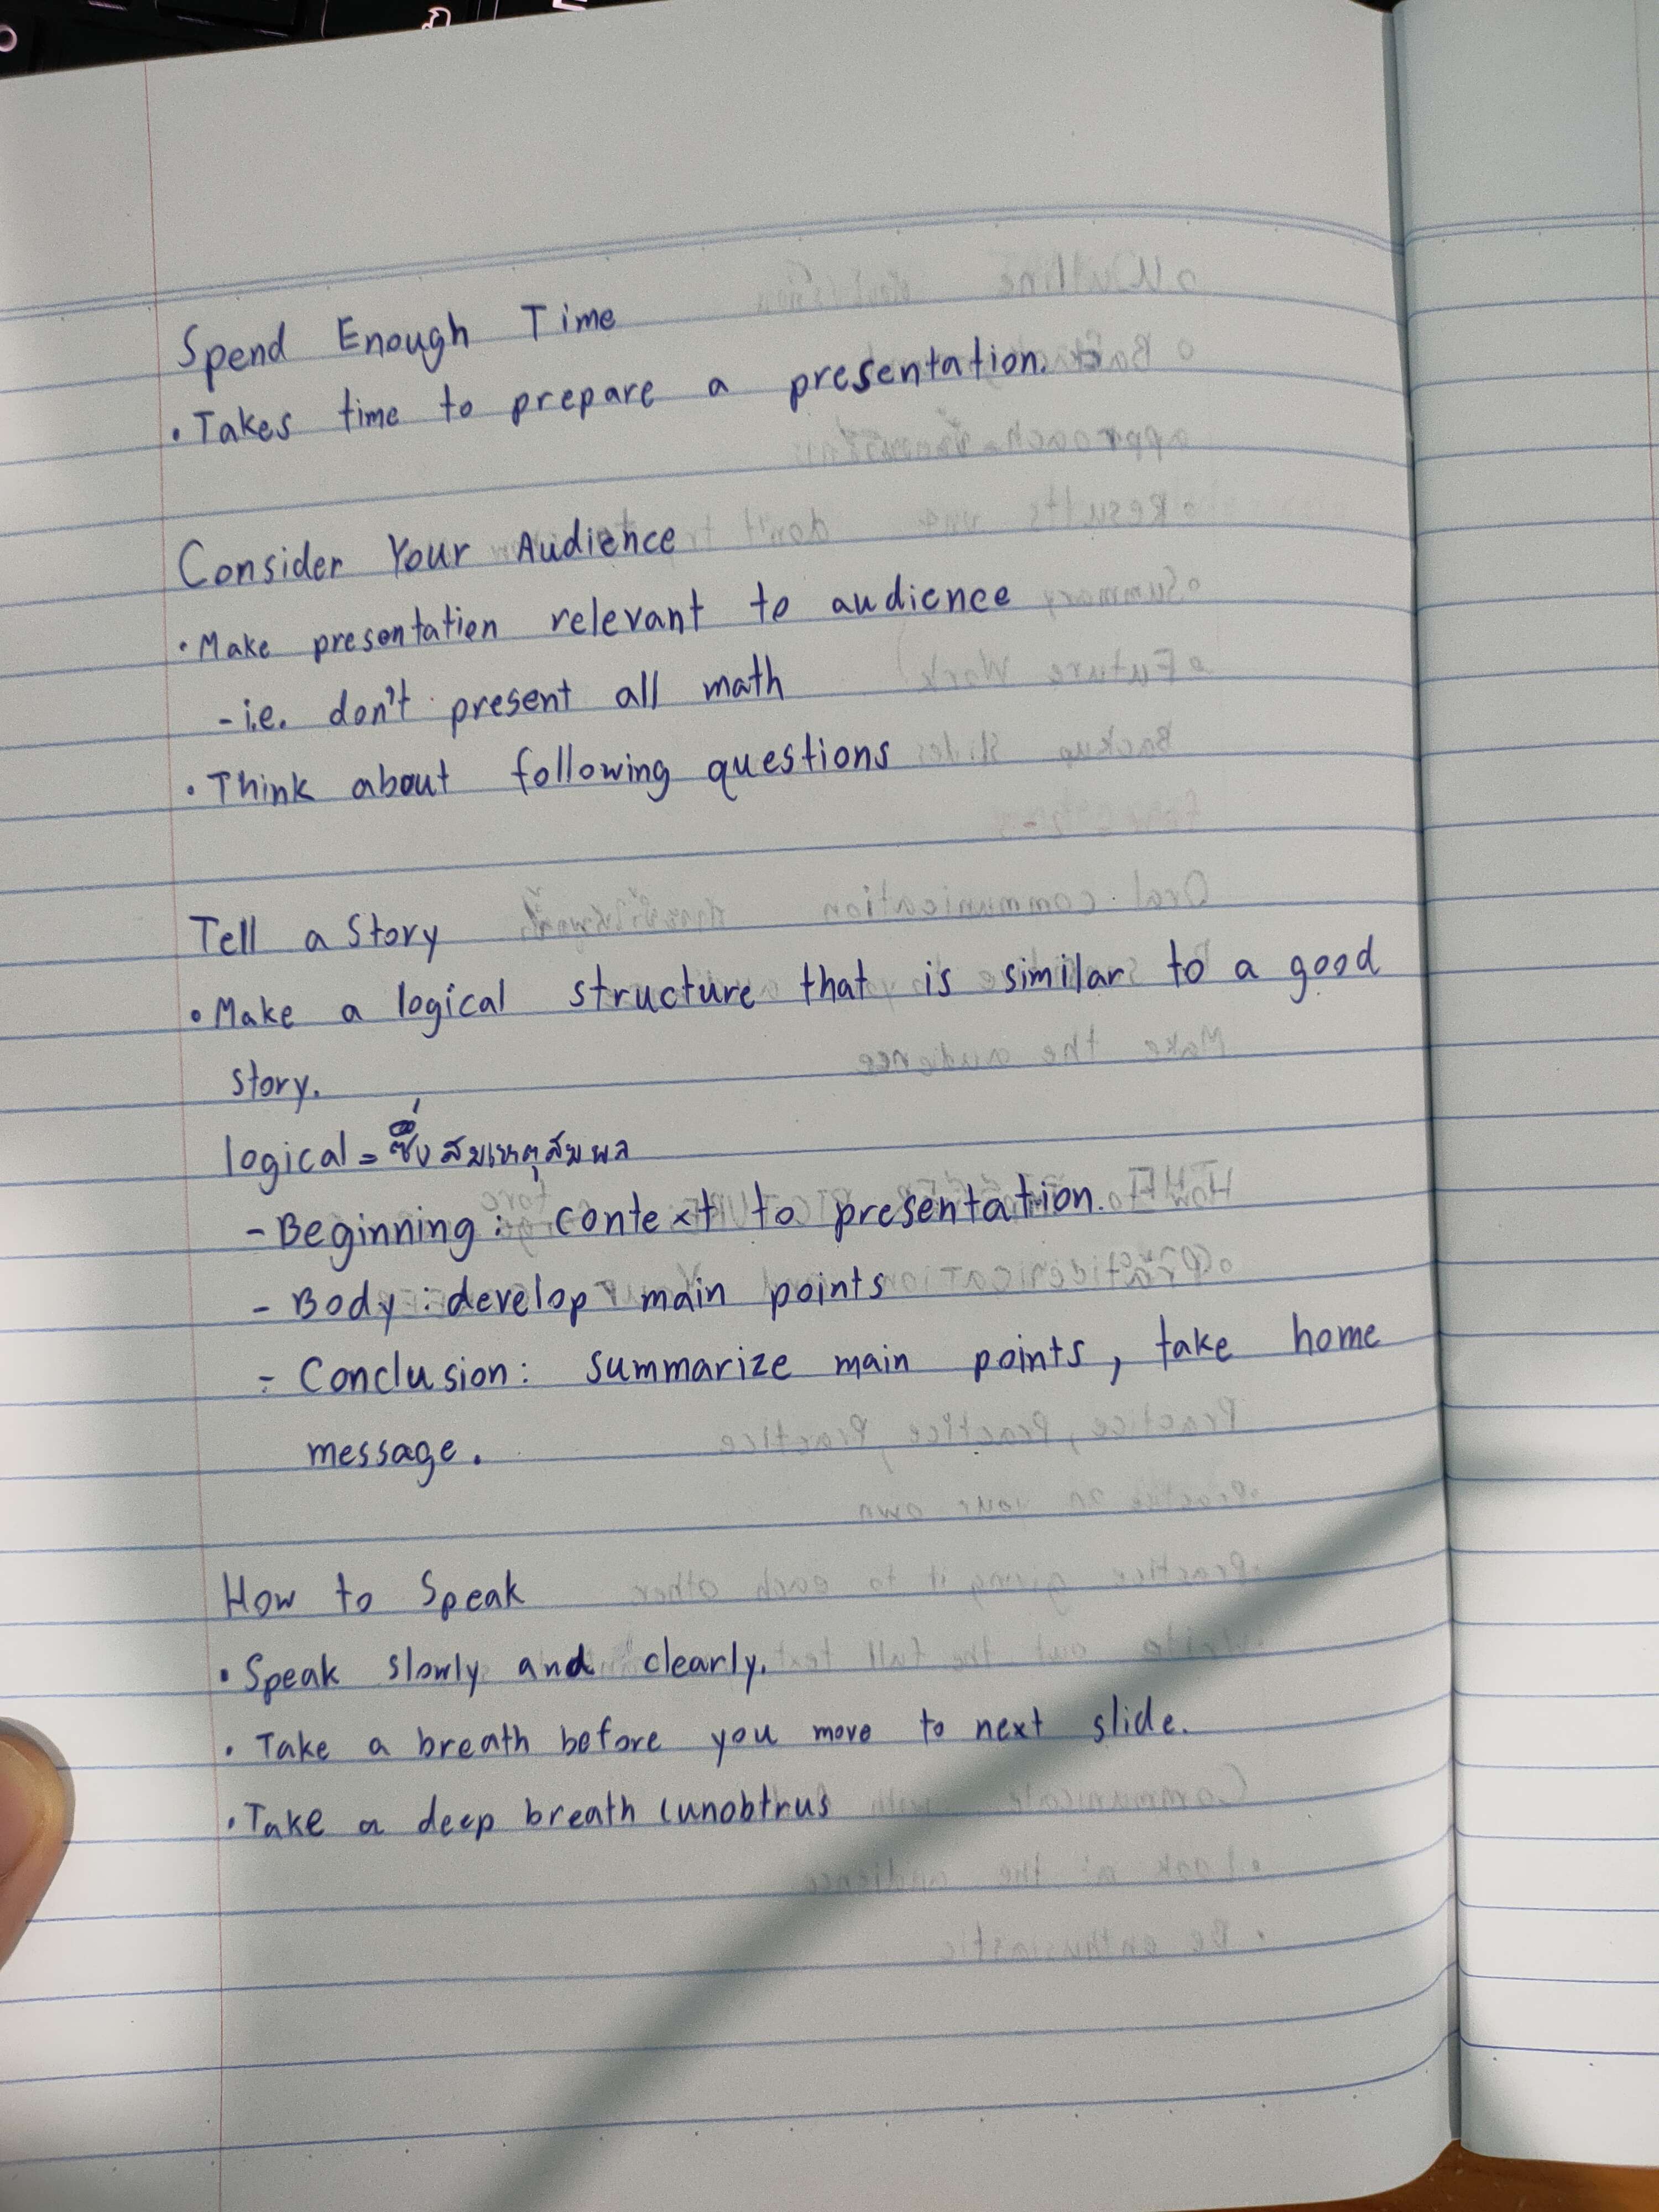 Spend Enough Time
• Takes time to prepare a presentation.
Consider Your Audience
• Make presentation relevant to audience
- i.e. don't present all math
• Think about following questions
Tell a Story
• Make a logical structure that is similar to a good
story.
logical = ซึ่งสมเหตุสมผล
- Beginning : context to presentation.
- Body : develop main points
- Conclusion : summarize main points, take home
message.
How to Speak
• Speak slowly and clearly.
• Take a breath before you move to next slide.
• Take a deep breath (unobtrus